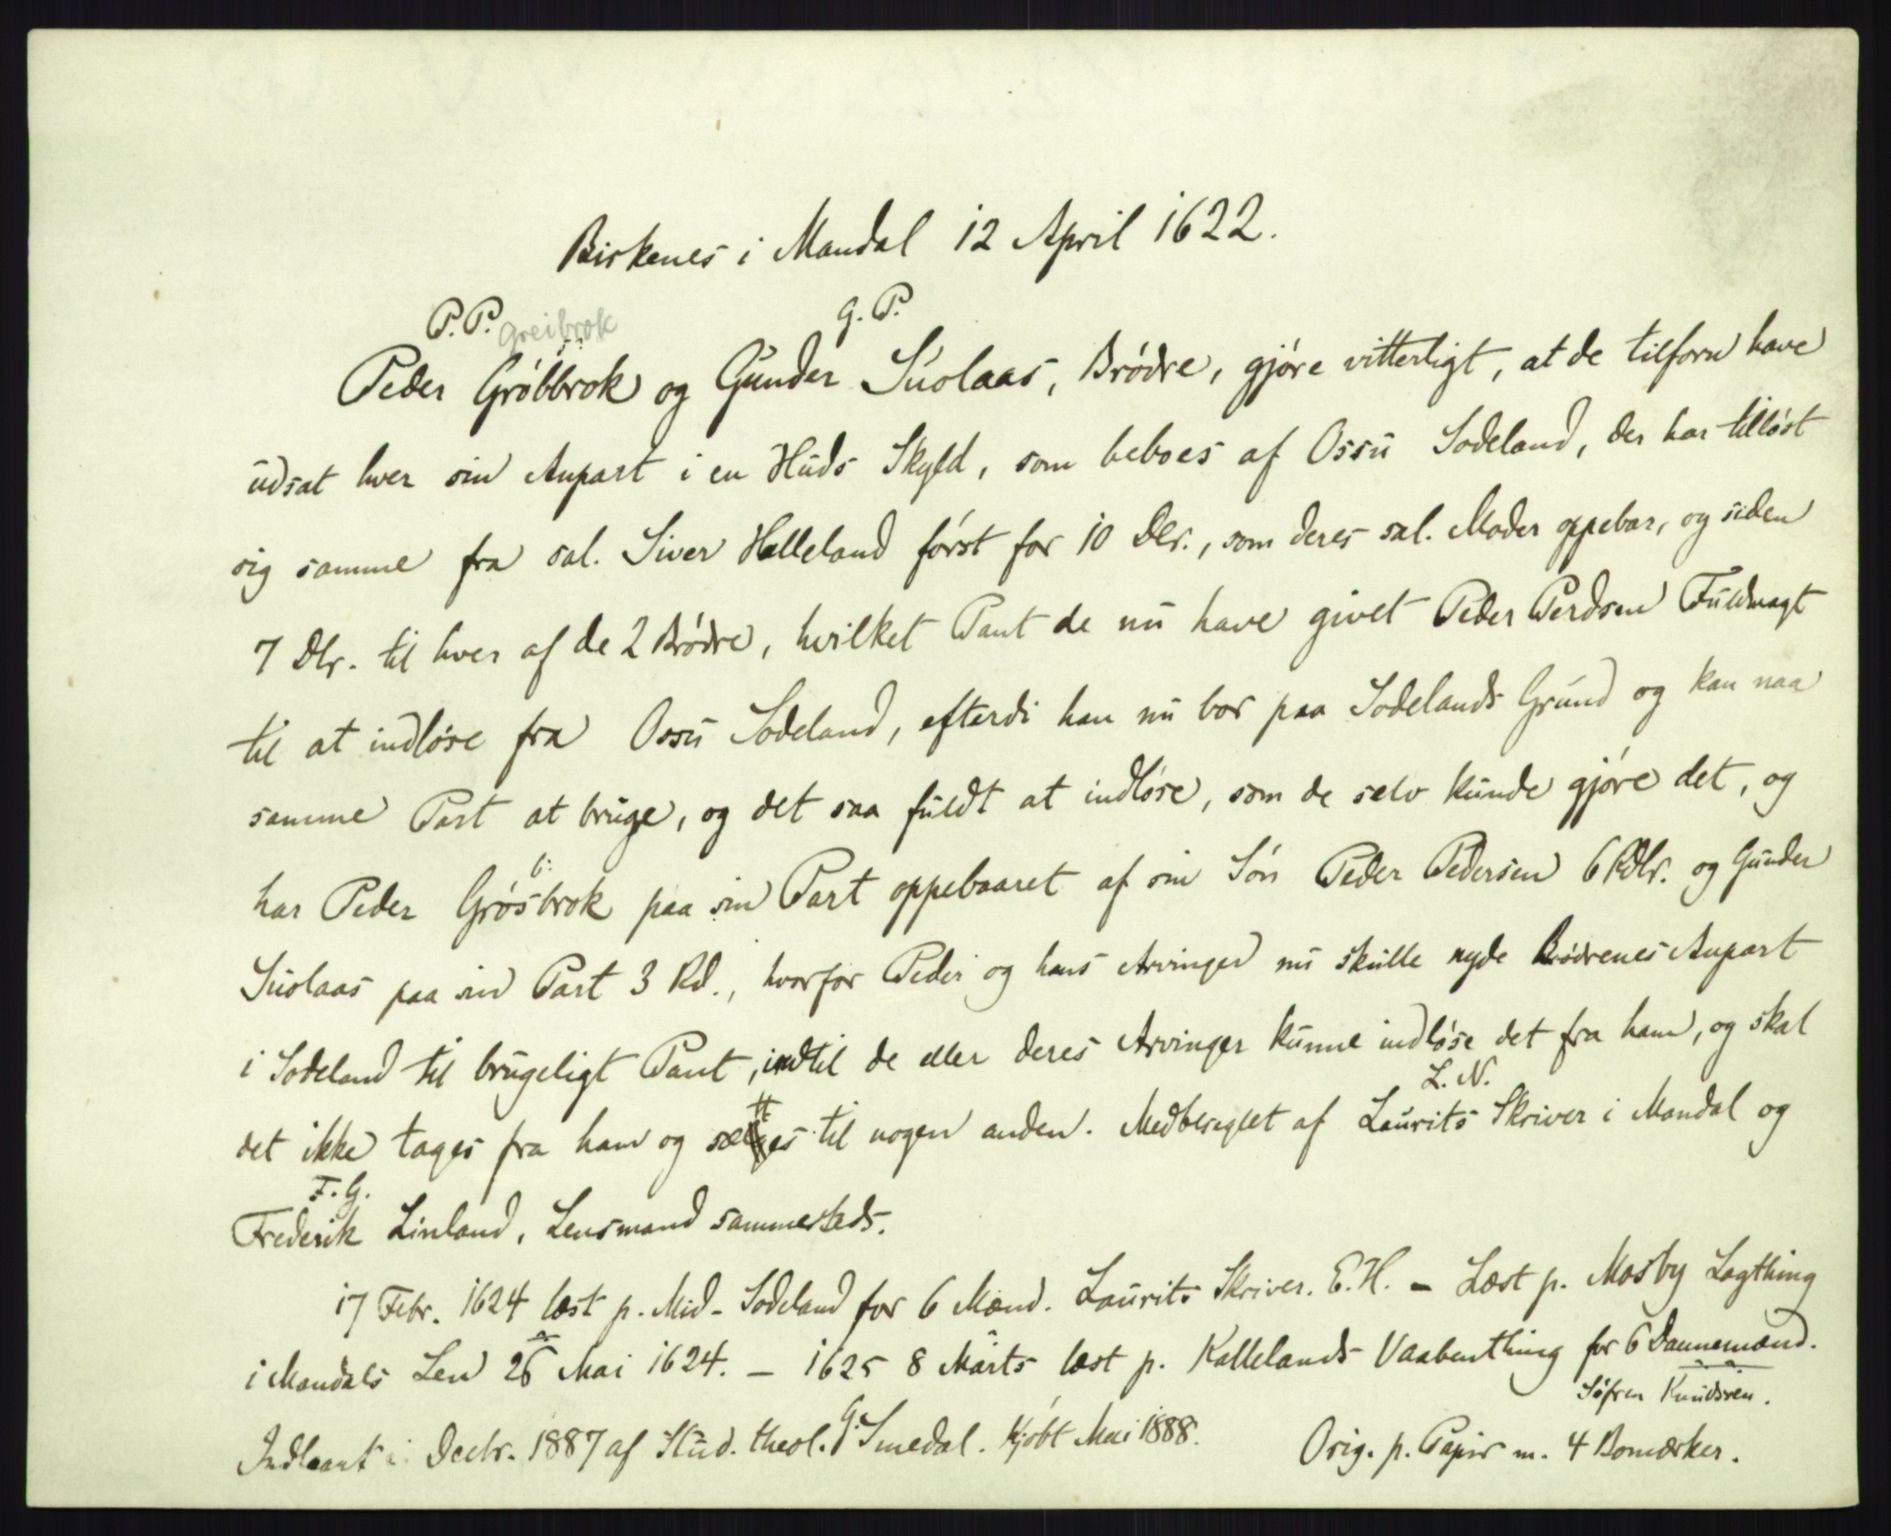 Birkenes i Mandal 12 April 1622.
P.P. Greibrok G.P.
Peder Gróbbrok og Gunder Súolaas, Bródre, gjóre vitterligt, at de tilforn have
udsat hver sin Anpart i en Huds Skyld, som beboes af Ossu Sodeland, der har tillóst
sig samme fra sal. Siver Helleland fórst for 10 Dlr., som deres sal. Moder oppebar, og siden
7 Dlr. til hver af de 2 Bródre, hvilket Pant de nu have givet Peder Perdsen Fuldmagt
til at indlóse fra Ossu Sodeland, efterdi han nu bor paa Sodelands Grund og kan naa
samme Part at bruge, og det saa fuldt at indlóse, som de selv kunde gjóre det, og
har Peder Grósbrok paa sin Part oppebaaret af sin Són Peder Pedersen 6 Rdlr. og Gunder
Suolaas paa sin Part 3 Rd., hvorfor Peder og hans Arvinger nu skulle nyde Bródrenes Anpart
i Sodeland til brugeligt Pant, indtil de eller deres Arvinger kunne indlóse det fra ham, og skal
L. N.
det ikke tages fra ham og sættes til nogen anden. Medbeseglet af Laurits Skriver i Mandal og
F. G.
Frederik Linland, Lensmand sammesteds.
17 Febr. 1624 læst p. Mid-Sodeland for 6 Mænd. Laurits Skriver. E. H. – Læst p. Mosby Lagthing
i Mandals Len 26 Mai 1624. – 1625 8 Märts læst p. Kallelands Vaabenthing for 6 Dannemænd.
Sófren Knudsøen.
Indlaant i Decbr. 1887 af Stud. theol. G. Smedal. Kjóbt Mai 1888. Orig. p. Papir m. 4 Bomærker.